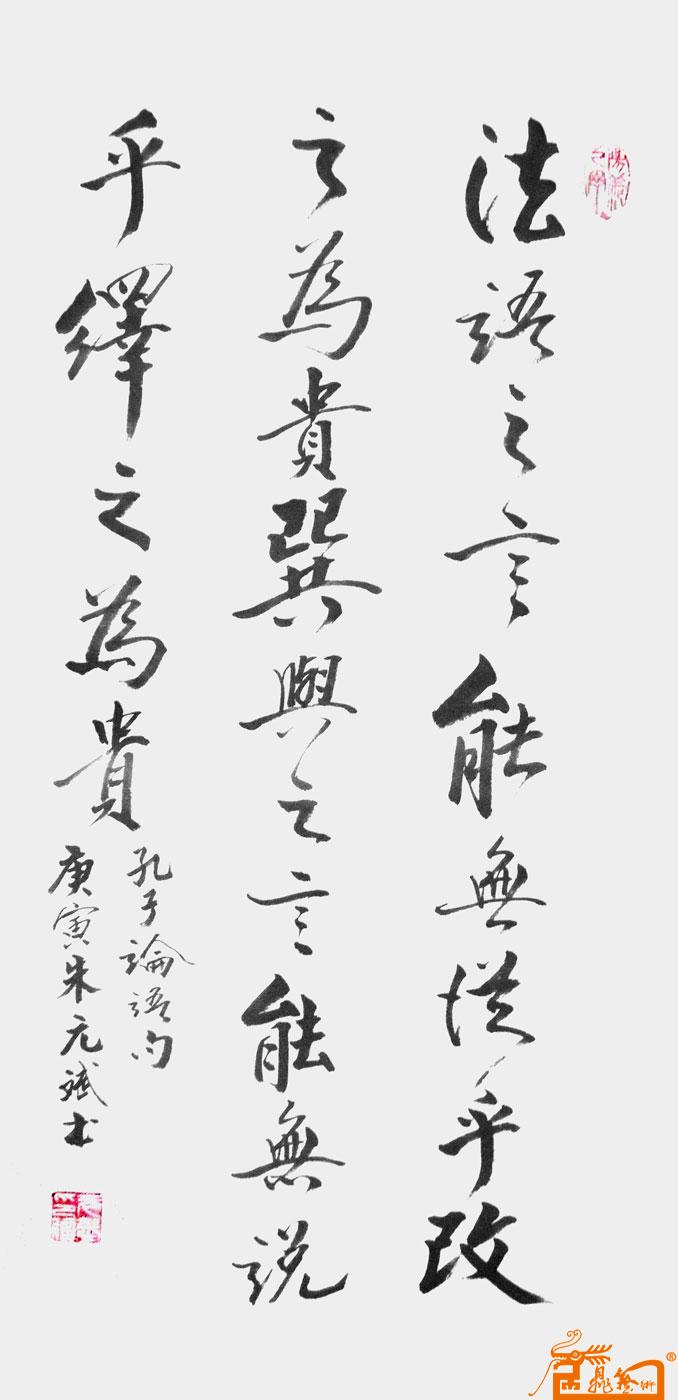 法語之言能無從乎改
之為貴巽與之言能無說
乎繹之為貴
孔子論語句
庚寅朱元斌书